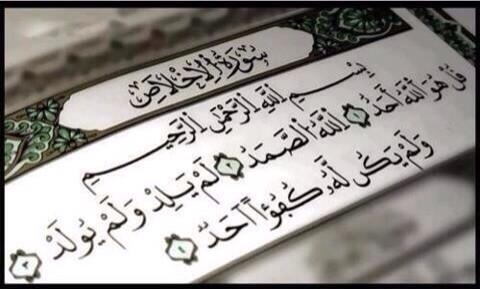 سُورَةُ الْإِخْلَاصِ
بِسْمِ اللَّهِ الرَّحْمَٰنِ الرَّحِيمِ
قُلْ هُوَ اللَّهُ أَحَدٌ ١ اللَّهُ الصَّمَدُ ٢ لَمْ يَلِدْ وَلَمْ يُولَدْ ٣
وَلَمْ يَكُن لَّهُ كُفُوًا أَحَدٌ ٤